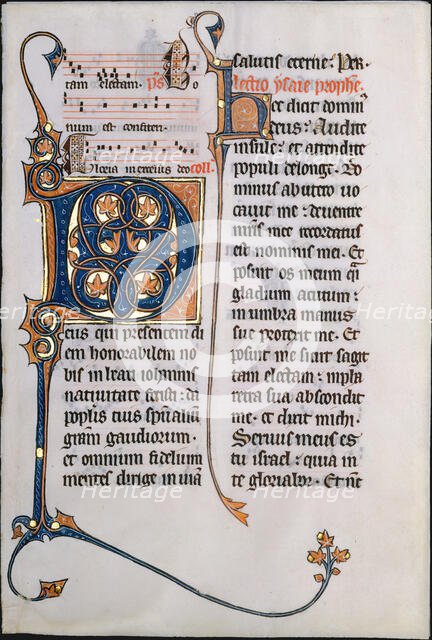 tam electam. ps Bo
num est confiteri.
Gloria in excelsis deo coll.
Deus qui presentem di
em honorabilem no
bis in beati iohannis
natiuitate fecisti: da
populis tuis spiritualium
gratiam gaudiorum.
et omnium fidelium
mentes dirige in uiam
salutis eterne: Per.
lectio ysaie prophete.
Hec dicit dominus
deus: Audite
insule: et attendite
populi de longe. Do
minus ab utero uo
cauit me: de uentre
matris mee recordatus
est nominis mei. Et
posuit os meum quasi
gladium acutum:
in umbra manus
sue protexit me. Et
posuit me sicut sagit
tam electam: in pha
retra sua abscondit
me. et dixit michi.
Seruus meus es
tu israel: quia in
te gloriabor. Et nunc
Heritage
Images